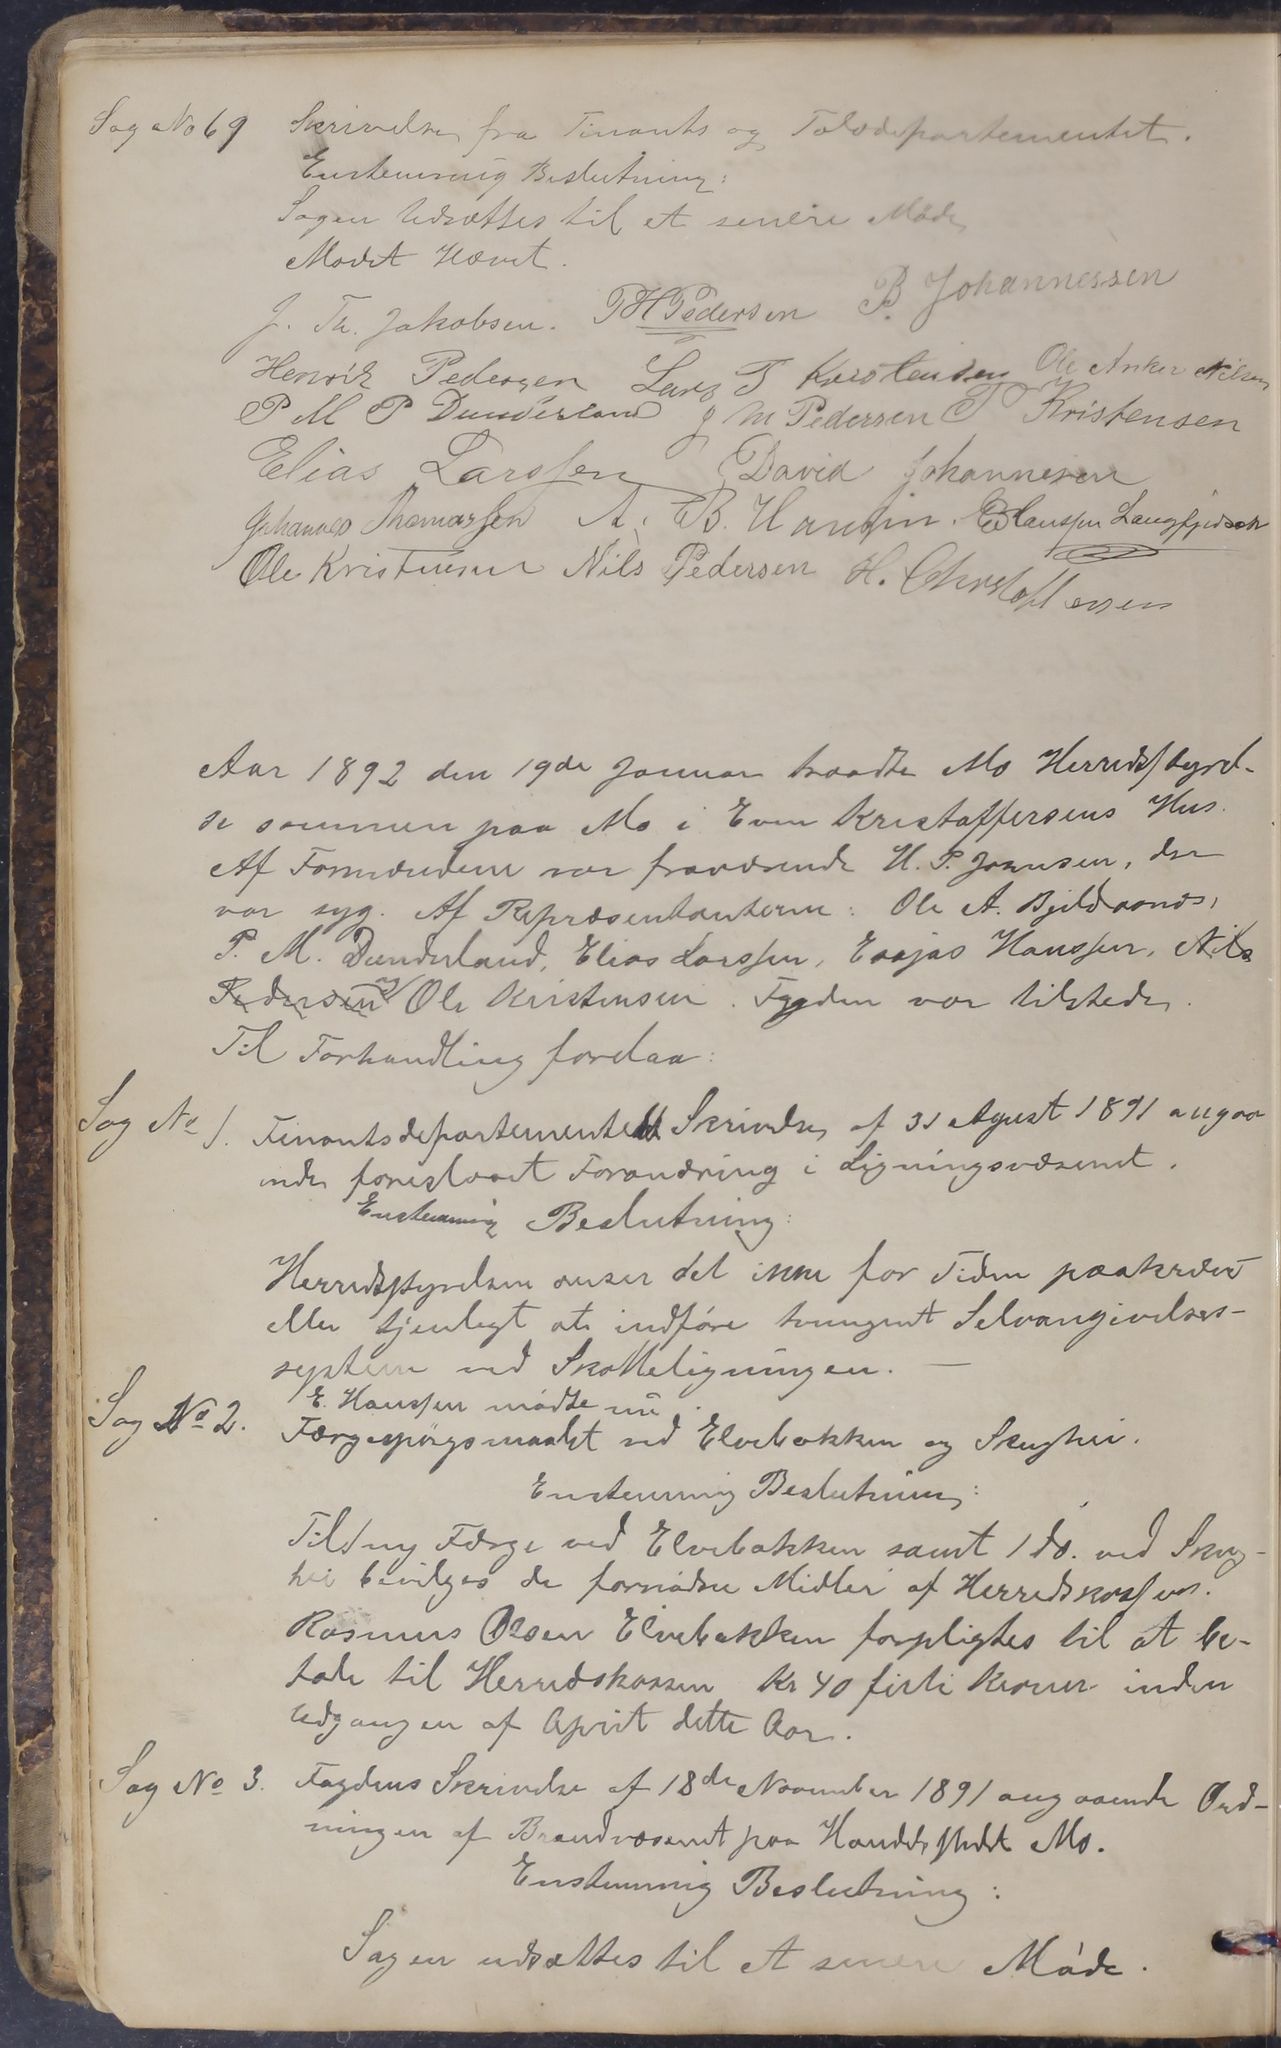 Sag No 69 Skrivelse fra Finants og Tolddepartementet.
Enstemmig Beslutning:
Sagen Udsættes til et senere Møde
Mødet Hævet.
J. Th. Jakobsen. P H Pedersen P. B Johannessen
Henrik Pedersen Lars T Kristensen Ole Anker Nilsen
P M P Dunderland J M Pedersen P Kristensen
Elias Larssen David Johannesen
Johannes Thomassen A. B. Hansen. E Hanssen Langfjeldnæs
Ole Kristensen Nils Pedersen H. Christoffersen
Aar 1892 den 19de Januar traadte Mo Herredsstyrel-
se sammen paa Mo i Even Kristoffersens Hus.
Af Formændene var fraværende H. P. Jonnsen, der
var syg. Af Repræsentanterne: Ole A. Bjeldaanæs,
P. M. Dunderland, Elias Larssen, Esajas Hanssen, Nils
Pedersen og Ole Kristensen. Fogden var tilstede.
Til Forhandling forelaa:
Sag No 1. Finantsdepartementets Skrivelse af 31 Agust 1891 angaa
ende foreslaaet Forandring i Ligningsvæsenet.
Enstemmig Beslutning:
Herredsstyrelsen anser det ikke for Tiden paakrævet
eller tjenligt at indføre tvungent Selvangivelses-
system ved Skatteligningen. —
E. Hanssen mødte nu.
Sag No 2. Færgespørgsmaalet ved Elvebakken og Skughei.
Enstemmig Beslutning:
Til 1 ny Færge ved Elvebakken samt 1 do. ved Skug-
hei bevilges de fornødne Midler af Herredskassen.
Rasmus Olsen Elvebakken forpligtes til at be-
tale til Herredskassen Kr 40 firti Kroner inden
Udgangen af April dette Aar.
Sag No 3. Fogdens Skrivelse af 18de November 1891 angaaende Ord-
ningen af Brandvæsenet paa Handelsstedet Mo.
Enstemmig Beslutning:
Sagen udsættes til et senere Møde.